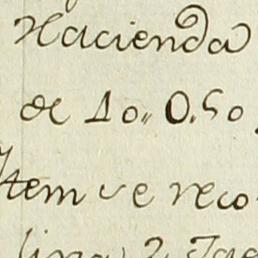 Hacienda
de 10,, 0.50
Item ve reco